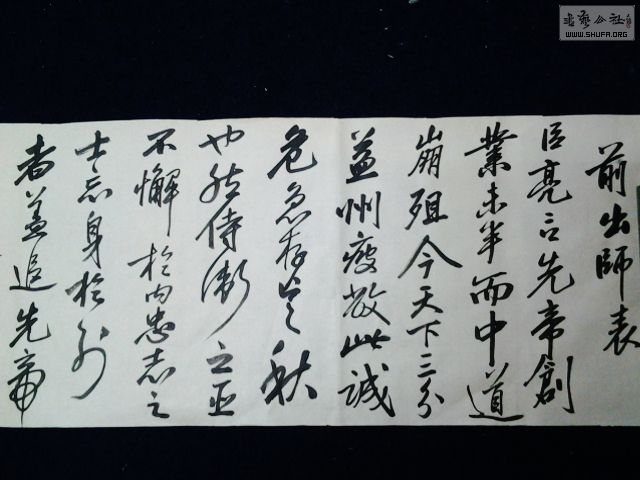 前出師表
臣亮言先帝創
業未半而中道
崩殂今天下三分
益州疲敝此誠
危急存亡之秋
也然侍衛之臣
不懈於內忠志之
士忘身於外
者蓋追先帝
書藝公社
WWW.SHUFA.ORG